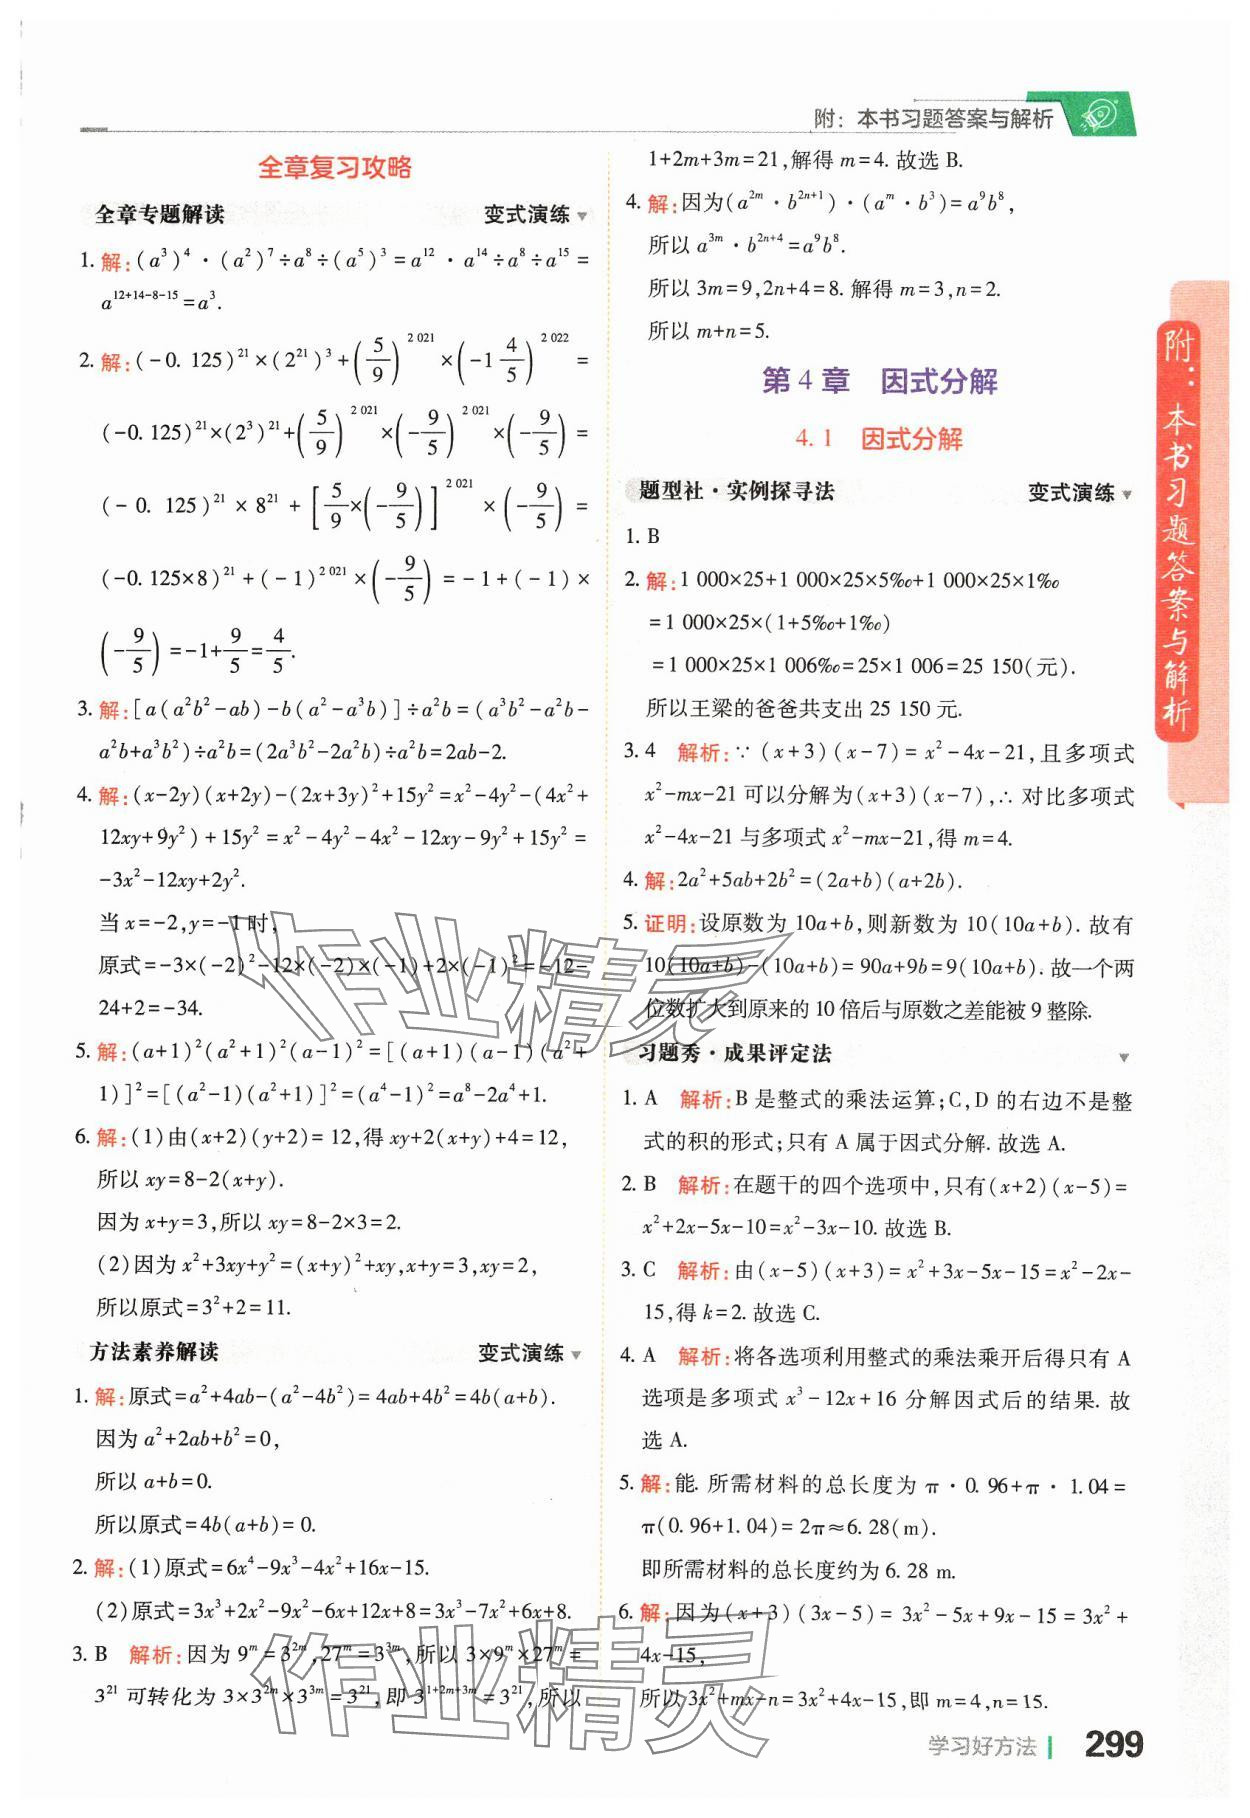 附：本书习题答案与解析
全章复习攻略
全章专题解读 变式演练
1. 解:(a³)⁴·(a²)⁷÷a⁸÷(a⁵)³=a¹²·a¹⁴÷a⁸÷a¹⁵=
a¹²⁺¹⁴⁻⁸⁻¹⁵=a³.
2. 解:(-0.125)²¹×(2²¹)³+(5/9)^2 021×(-1 4/5)^2 022=
(-0.125)²¹×(2³)²¹+(5/9)^2 021×(-9/5)^2 021×(-9/5)=
(-0.125)²¹×8²¹+[5/9×(-9/5)]^2 021×(-9/5)=
(-0.125×8)²¹+(-1)^2 021×(-9/5)=-1+(-1)×
(-9/5)=-1+9/5=4/5.
3. 解:[a(a²b²-ab)-b(a²-a³b)]÷a²b=(a³b²-a²b-
a²b+a³b²)÷a²b=(2a³b²-2a²b)÷a²b=2ab-2.
4. 解:(x-2y)(x+2y)-(2x+3y)²+15y²=x²-4y²-(4x²+
12xy+9y²)+15y²=x²-4y²-4x²-12xy-9y²+15y²=
-3x²-12xy+2y².
当x=-2,y=-1时,
原式=-3×(-2)²-12×(-2)×(-1)+2×(-1)²=-12-
24+2=-34.
5. 解:(a+1)²(a²+1)²(a-1)²=[(a+1)(a-1)(a²+
1)]²=[(a²-1)(a²+1)]²=(a⁴-1)²=a⁸-2a⁴+1.
6. 解:(1)由(x+2)(y+2)=12,得xy+2(x+y)+4=12,
所以xy=8-2(x+y).
因为x+y=3,所以xy=8-2×3=2.
(2)因为x²+3xy+y²=(x+y)²+xy,x+y=3,xy=2,
所以原式=3²+2=11.
方法素养解读 变式演练
1. 解:原式=a²+4ab-(a²-4b²)=4ab+4b²=4b(a+b).
因为a²+2ab+b²=0,
所以a+b=0.
所以原式=4b(a+b)=0.
2. 解:(1)原式=6x⁴-9x³-4x²+16x-15.
(2)原式=3x³+2x²-9x²-6x+12x+8=3x³-7x²+6x+8.
3. B 解析:因为9ᵐ=3²ᵐ,27ᵐ=3³ᵐ,所以3×9ᵐ×27ᵐ=
3²¹可转化为3×3²ᵐ×3³ᵐ=3²¹,即3¹⁺²ᵐ⁺³ᵐ=3²¹,所以
1+2m+3m=21,解得m=4.故选B.
4. 解:因为(a²ᵐ·b²ⁿ⁺¹)·(aᵐ·b³)=a⁹b⁸,
所以a³ᵐ·b²ⁿ⁺⁴=a⁹b⁸.
所以3m=9,2n+4=8.解得m=3,n=2.
所以m+n=5.
第4章 因式分解
4.1 因式分解
题型社·实例探寻法 变式演练
1. B
2. 解:1 000×25+1 000×25×5‰+1 000×25×1‰
=1 000×25×(1+5‰+1‰)
=1 000×25×1 006‰=25×1 006=25 150(元).
所以王梁的爸爸共支出25 150元.
3. 4 解析:∵(x+3)(x-7)=x²-4x-21,且多项式
x²-mx-21可以分解为(x+3)(x-7),∴对比多项式
x²-4x-21与多项式x²-mx-21,得m=4.
4. 解:2a²+5ab+2b²=(2a+b)(a+2b).
5. 证明:设原数为10a+b,则新数为10(10a+b).故有
10(10a+b)-(10a+b)=90a+9b=9(10a+b).故一个两
位数扩大到原来的10倍后与原数之差能被9整除.
习题秀·成果评定法
1. A 解析:B是整式的乘法运算;C,D的右边不是整
式的积的形式;只有A属于因式分解.故选A.
2. B 解析:在题干的四个选项中,只有(x+2)(x-5)=
x²+2x-5x-10=x²-3x-10.故选B.
3. C 解析:由(x-5)(x+3)=x²+3x-5x-15=x²-2x-
15,得k=2.故选C.
4. A 解析:将各选项利用整式的乘法乘开后得只有A
选项是多项式x³-12x+16分解因式后的结果.故
选A.
5. 解:能.所需材料的总长度为π·0.96+π·1.04=
π(0.96+1.04)=2π≈6.28(m).
即所需材料的总长度约为6.28 m.
6. 解:因为(x+3)(3x-5)=3x²-5x+9x-15=3x²+
4x-15,
所以3x²+mx-n=3x²+4x-15,即m=4,n=15.
附：本书习题答案与解析
作业精灵
作业精灵
学习好方法 299